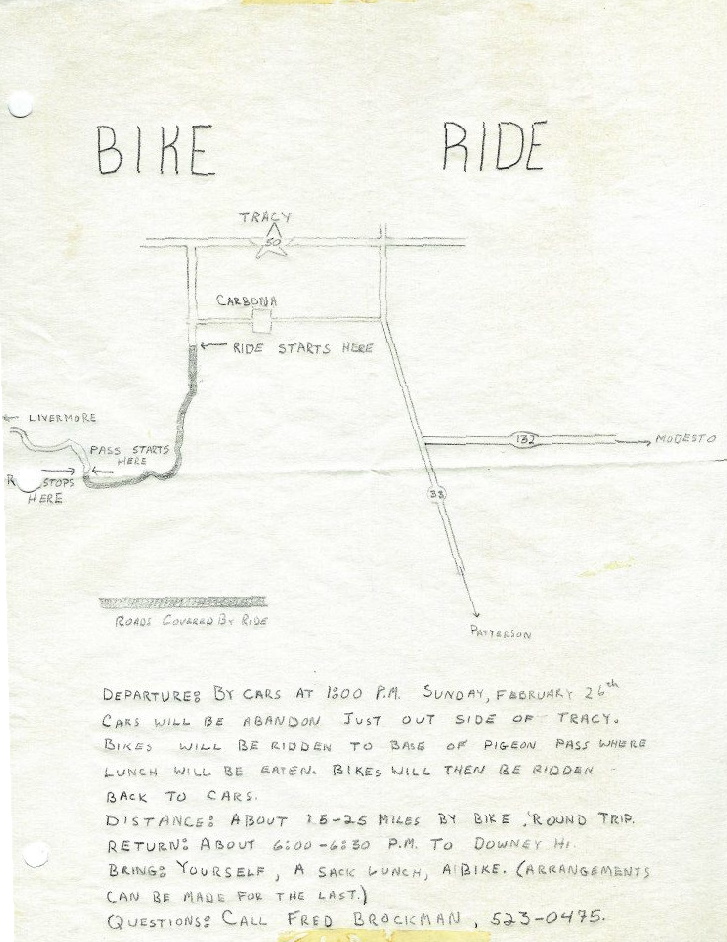 BIKE RIDE
TRACY
50
CARBONA
← RIDE STARTS HERE
← LIVERMORE
132 → MODESTO
PASS STARTS
← HERE
R STOPS →
HERE
33
ROADS COVERED BY RIDE
PATTERSON
DEPARTURE: BY CARS AT 1:00 P.M. SUNDAY, FEBRUARY 26th
CARS WILL BE ABANDON JUST OUT SIDE OF TRACY.
BIKES WILL BE RIDDEN TO BASE OF PIGEON PASS WHERE
LUNCH WILL BE EATEN. BIKES WILL THEN BE RIDDEN
BACK TO CARS.
DISTANCE: ABOUT 15-25 MILES BY BIKE, 'ROUND TRIP.
RETURN: ABOUT 6:00-6:30 P.M. TO DOWNEY HI.
BRING: YOURSELF, A SACK LUNCH, A BIKE. (ARRANGEMENTS
CAN BE MADE FOR THE LAST.)
QUESTIONS: CALL FRED BROCKMAN, 523-0475.